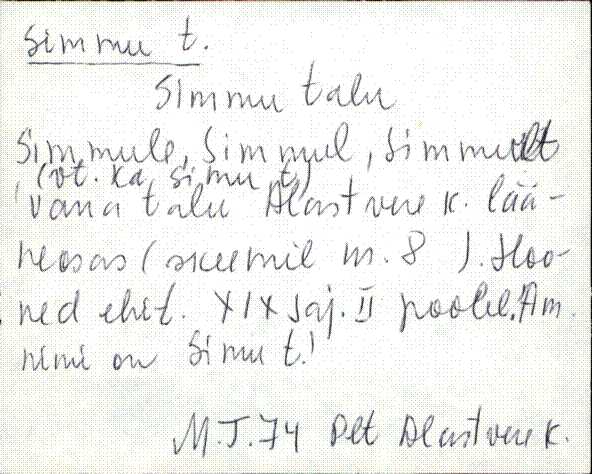 Simmu t.
Simmu talu
Simmule, Simmul, Simmult
(vt. ka Simu t.)
Vana talu Alastvere k. lää-
neosas (skeemil nr. 8 ). Hoo-
ned ehit. XIX saj. II poolel. Am.
nimi on Simu t.!
M.J. 74 Plt Alastvere k.